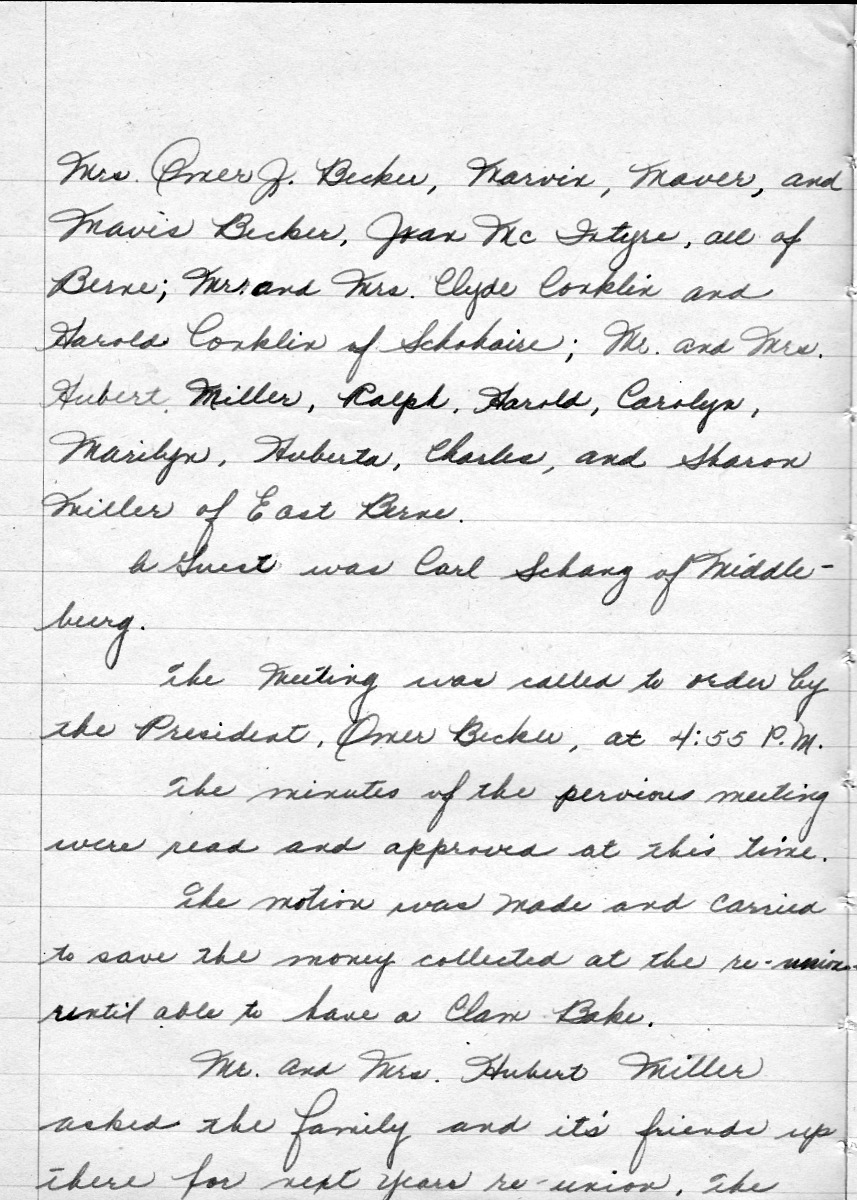 Mrs. Omer J. Becker, Marvin, Maver, and
Mavis Becker, Joan Mc Intyre, all of
Berne; Mr. and Mrs. Clyde Conklin and
Harold Conklin of Schohaire; Mr. and Mrs.
Hubert Miller, Ralph, Harold, Carolyn,
Marilyn, Huberta, Charles, and Sharon
Miller of East Berne.
A Guest was Carl Schang of Middle-
burg.
The Meeting was called to order by
the President, Omer Becker, at 4:55 P.M.
The minutes of the pervious meeting
were read and approved at this time.
The motion was made and carried
to save the money collected at the re-union
until able to have a Clam Bake.
Mr. and Mrs. Hubert Miller
asked the family and it's friends up
there for next years re-union. The